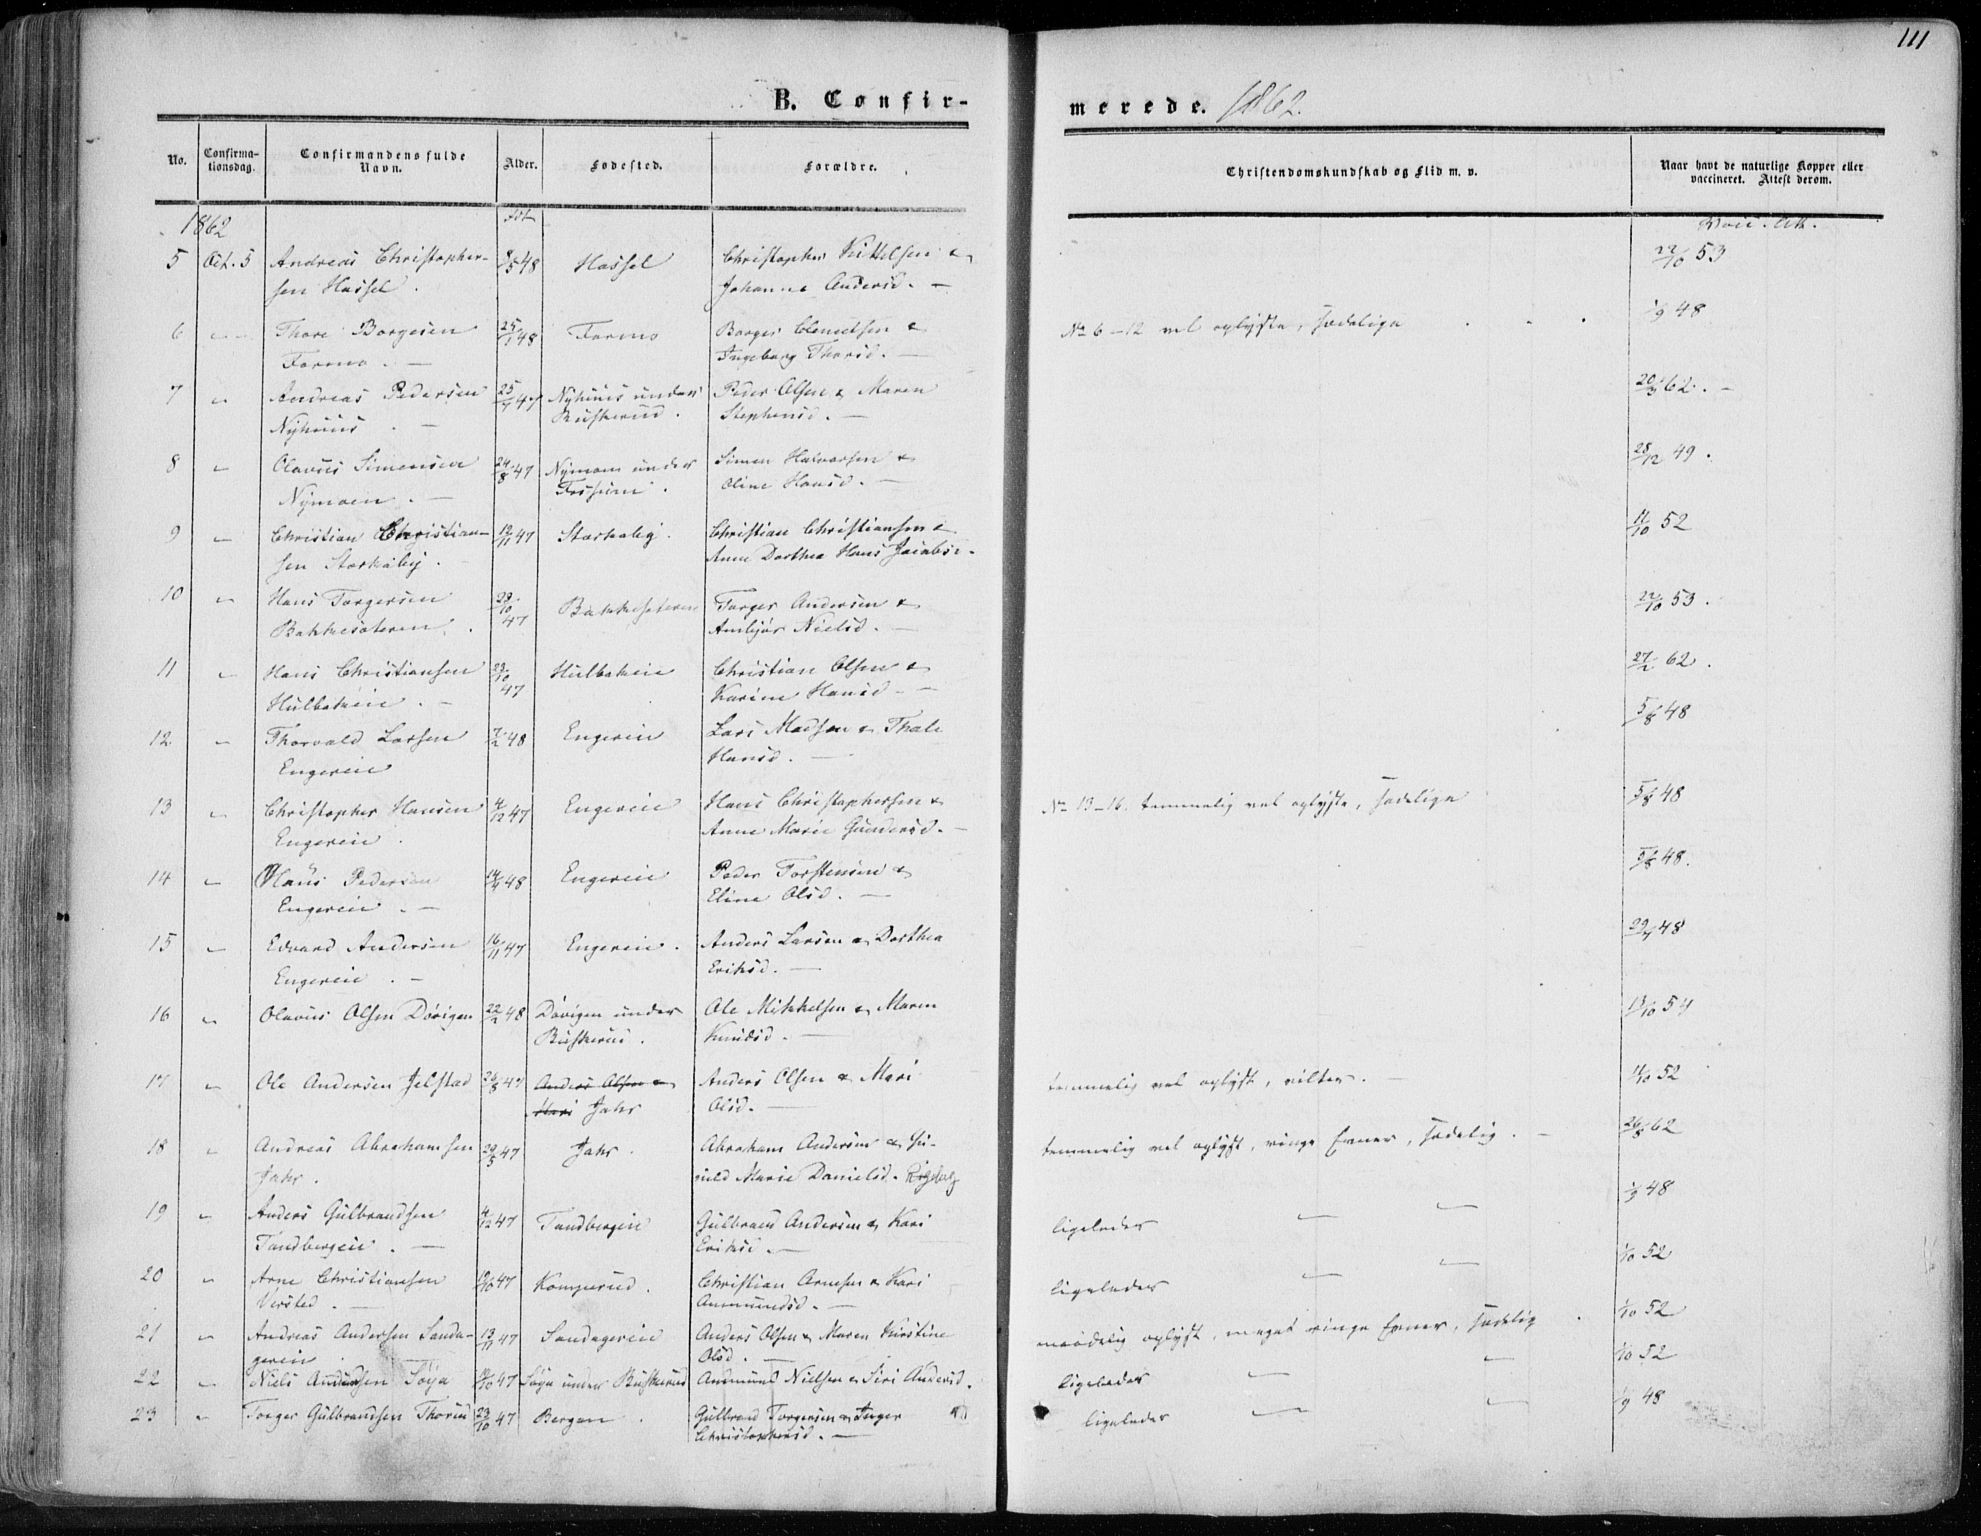 111
B. Confir-
merede. 1862.
No.
Confirma-
tionsdag.
Confirmandens fulde
Navn.
Alder.
Fødested.
Forældre.
Christendomskundskab og Flid m. v.
Naar havt de naturlige Kopper eller
vaccineret. Attest derom.
1862
5 Oct. 5 Andreas Christopher- 8/5 48 Hassel Christopher Kittelsen &
sen Hassel. Johanne Andersd. — 22/10 53
6 " Thore Borgersen 25/1 48 Formo Borger Clemetsen & No 6-12 vel oplyste, sædelige 1/9 48
Formo. — Ingeborg Thorsd. —
7 " Andreas Pedersen 25/7 47 Nyhuus under Peder Olsen & Maren 20/3 62. —
Nyhuus — Buskerud. Stephensd. —
8 " Olaves Simensen 24/8 47 Nymoen under Simen Halvorsen & 28/12 49.
Nymoen. — Fossum. Oline Hansd. —
9 " Christian Christian- 12/11 47 Storkaby. Christian Christiansen & 11/10 52
sen Storkaby. Anne Dorthea Hans Jacobs
10 " Hans Torgersen 29/10 47 Bakkesæteren Torger Andersen & 22/10 53.
Bakkesæteren. Ambjør Nielsd. —
11 " Hans Christiansen 29/10 47 Hulbakeie Christian Olsen & 27/2 62.
Hulbakeie. — Karine Hansd. —
12 " Thorvald Larsen 7/2 48 Engereie Lars Madsen & Thale 5/8 48
Engereie Hansd. —
13 " Christopher Hansen 4/12 47 Engereie Hans Christophersen & No 13-16. temmelig vel oplyste, sædelige 5/8 48
Engereie. Anne Marie Gundersd. —
14 " Claus Pedersen 14/4 48 Engereie Peder Torstensen & 5/8 48.
Engereie. — Eline Olsd. —
15 " Edvard Andersen 16/11 47 Engereie. Anders Larsen & Dorthea 29/7 48
Engereie. — Eriksd. —
16 " Olavus Olsen Døvigen 22/2 48 Døvigen under Ole Mikkelsen & Maren 13/10 54
Buskerud. Knudsd. —
17 " Ole Andersen Jelstad 26/8 47 Anders Olsen & Anders Olsen & Mari temmelig vel oplyst, vilter. — 11/10 52
Mari Jahr Olsd. —
18 " Andreas Abrahamsen 29/5 47 Jahr. Abraham Andersen & Gu- temmelig vel oplyst, ringe Evner, sædelig. — 26/8 62
Jahr. nild Marie Danielsd.
19 " Anders Gulbrandsen 4/12 47 Tandbergeie Gulbrand Andersen & Kari ligeledes — — 1/9 48
Tandbergeie. — Eriksd. —
20 " Arne Christiansen 47 Komperud. Christian Arnesen & Kari ligeledes — — 1/10 52
Versted. — Anmundsd. —
21 " Andreas Andersen Sanda- 13/11 47 Sandagereie Anders Olsen & Maren Kirstine maadelig oplyst, meget ringe Evner, sædelig. 1/10 52
gereie Olsd. —
22 " Niels Andersen Søya 47 Søya under Buskerud Anmund Nielsen & Siri Andersd. ligeledes — — 1/10 52
23 " Torger Gulbrandsen Thorud 23/10 47 Bergan. Gulbrand Torgersen & Inger ligeledes — — 1/9 48
Christophersd. —